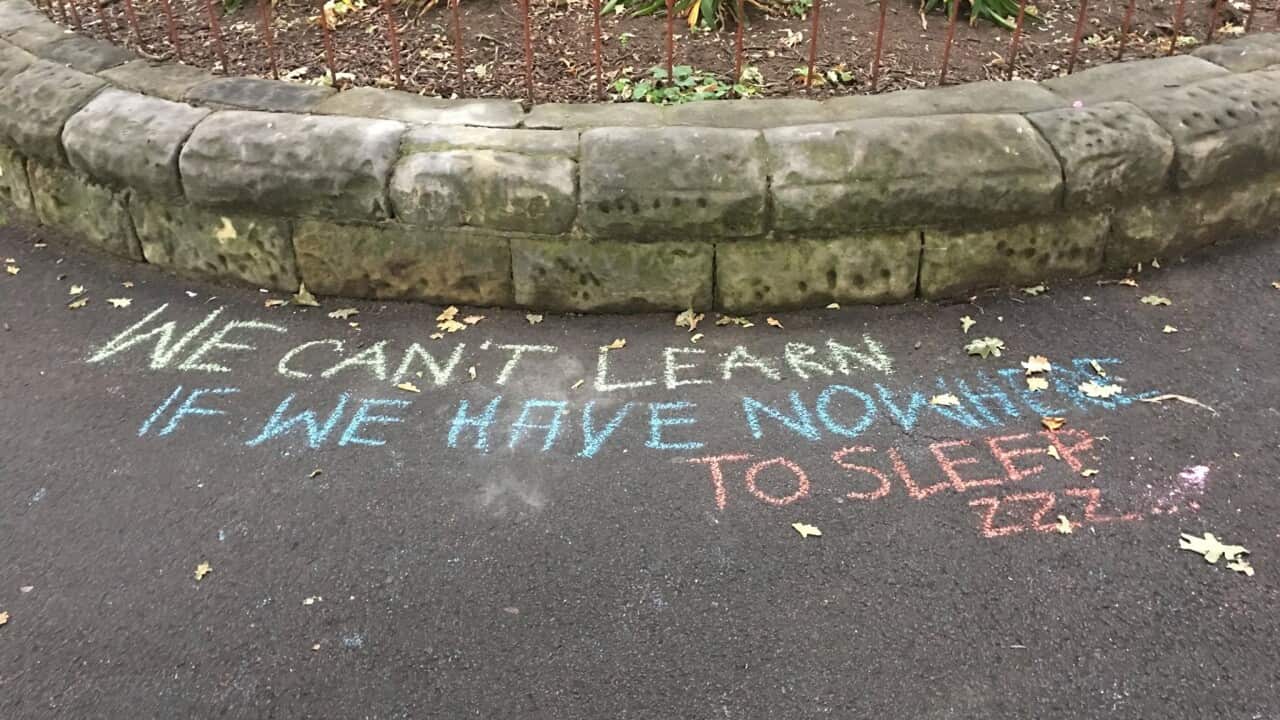 WE CAN'T LEARN
IF WE HAVE NOWHERE
TO SLEEP
ZZZ